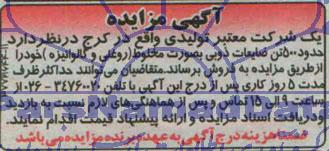 آگهی مزایده
یک شرکت معتبر تولیدی واقع در کرج در نظر دارد
حدود ۵۰۰ تن ضایعات ذوبی بصورت مخلوط (روغنی و گالوانیزه) خود را
از طریق مزایده به فروش برساند. متقاضیان می توانند حداکثر ظرف
مدت ۵ روز کاری پس از درج این آگهی با تلفن ۰۲۶-۳۴۷۶۰۲ از
ساعت ۹ الی ۱۵ تماس و پس از هماهنگی های لازم نسبت به بازدید
و دریافت اسناد مزایده و ارائه پیشنهاد قیمت اقدام نمایند.
ضمناً هزینه درج آگهی به عهده برنده مزایده می باشد